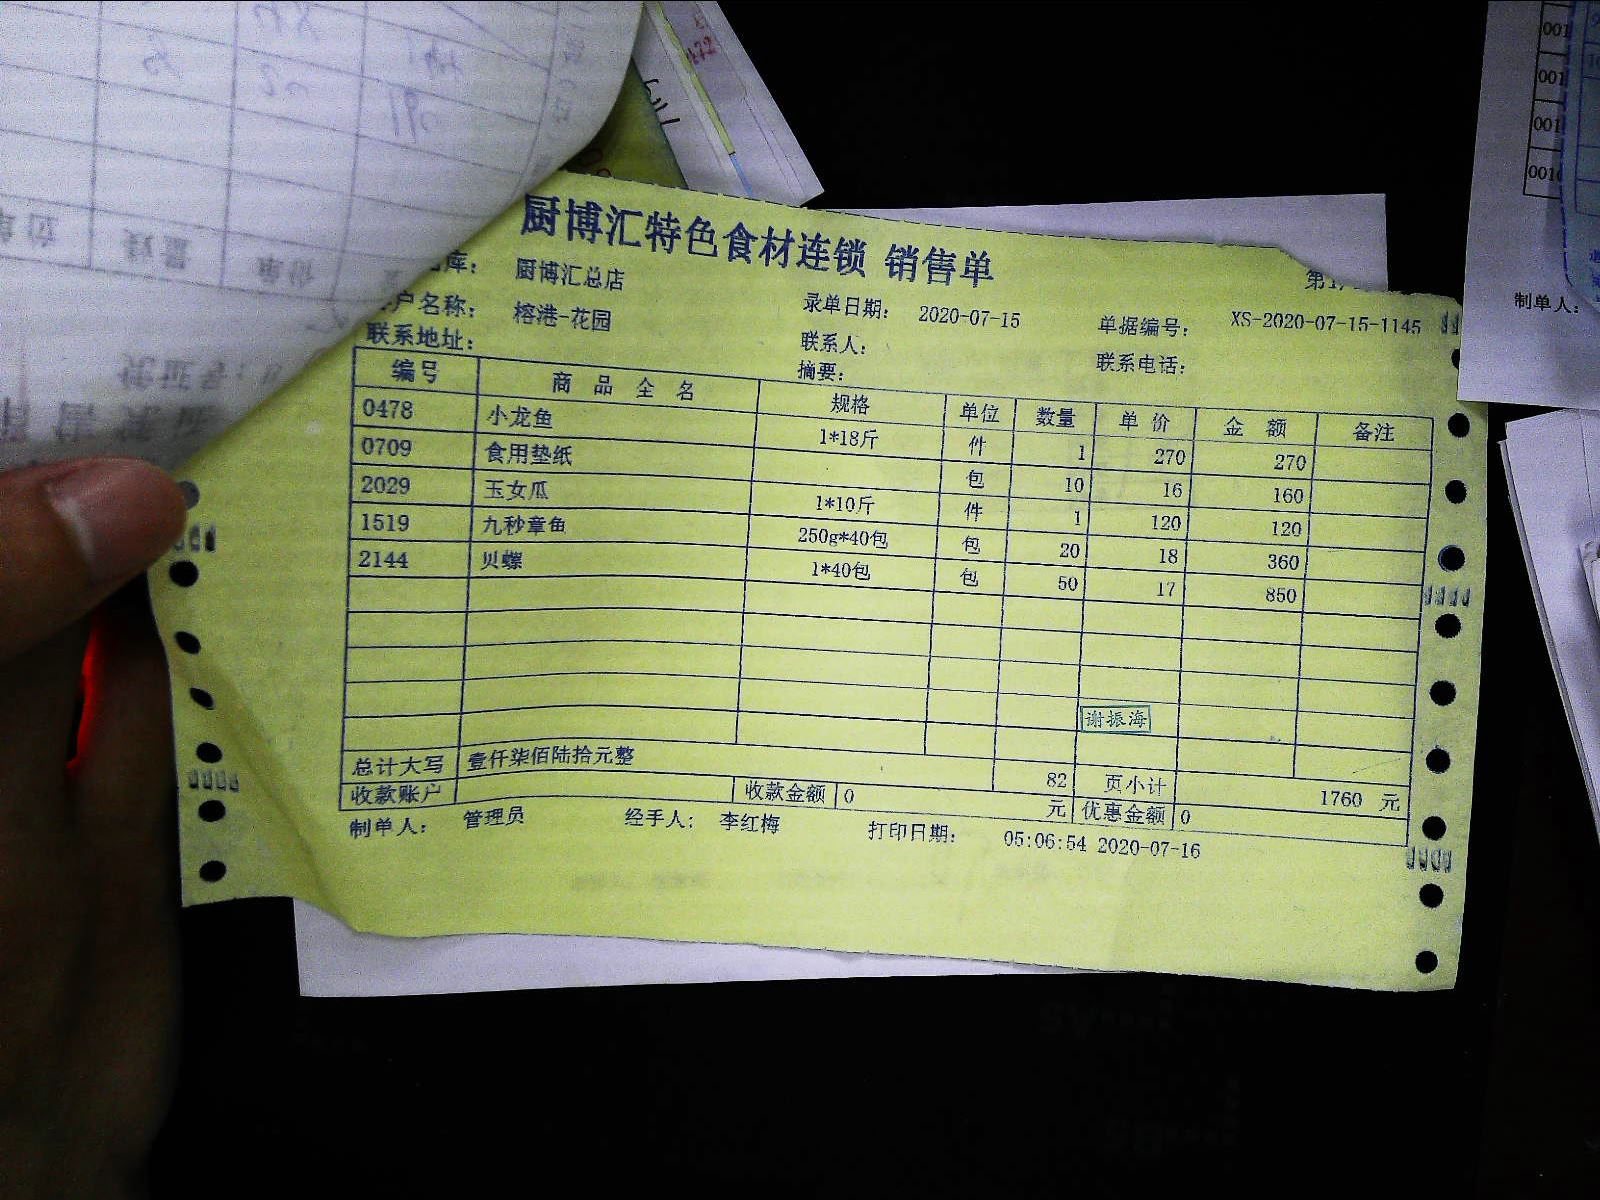 厨博汇特色食材连锁 销售单
库： 厨博汇总店
户名称： 榕港-花园 录单日期： 2020-07-15 单据编号： XS-2020-07-15-1145
联系地址： 联系人： 联系电话：
摘要：
编号 商品全名 规格 单位 数量 单价 金额 备注
0478 小龙鱼 1*18斤 件 1 270 270
0709 食用垫纸 包 10 16 160
2029 玉女瓜 1*10斤 件 1 120 120
1519 九秒章鱼 250g*40包 包 20 18 360
2144 贝螺 1*40包 包 50 17 850
谢振海
总计大写 壹仟柒佰陆拾元整 82 页小计 1760 元
收款账户 收款金额 0 元 优惠金额 0
制单人： 管理员 经手人； 李红梅 打印日期： 05:06:54 2020-07-16
制单人：
001
001
001